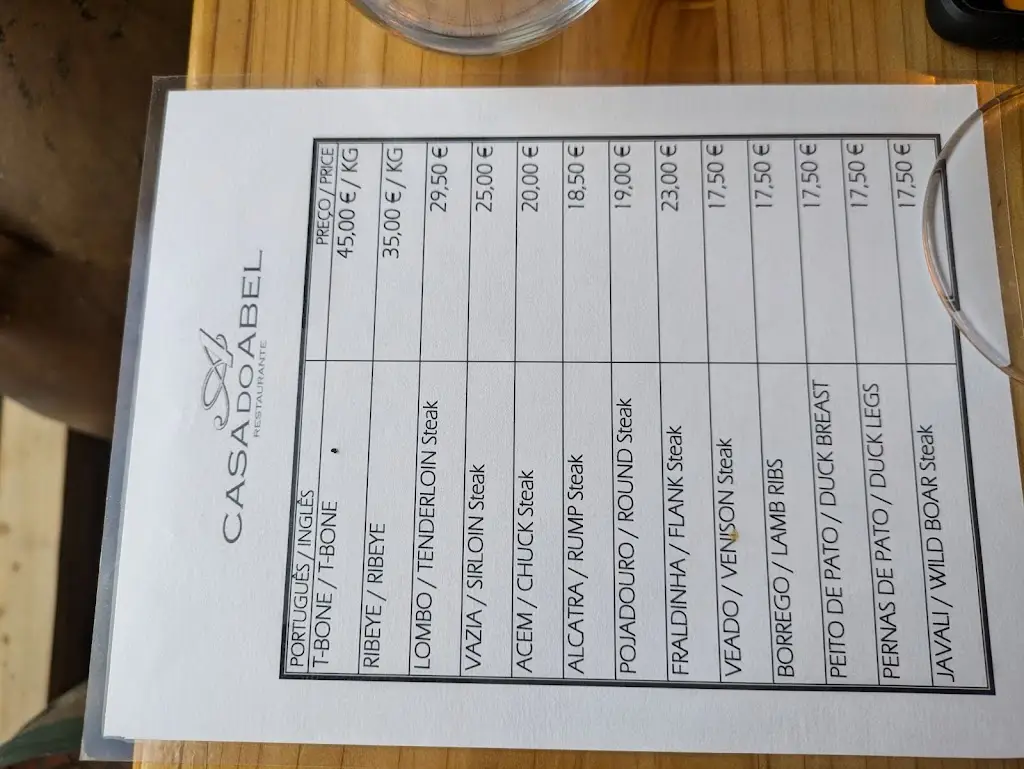 CASADOABEL
RESTAURANTE
PORTUGUÊS / INGLÊS PREÇO / PRICE
T-BONE / T-BONE 45,00 € / KG
RIBEYE / RIBEYE 35,00 € / KG
LOMBO / TENDERLOIN Steak 29,50 €
VAZIA / SIRLOIN Steak 25,00 €
ACEM / CHUCK Steak 20,00 €
ALCATRA / RUMP Steak 18,50 €
POJADOURO / ROUND Steak 19,00 €
FRALDINHA / FLANK Steak 23,00 €
VEADO / VENISON Steak 17,50 €
BORREGO / LAMB RIBS 17,50 €
PEITO DE PATO / DUCK BREAST 17,50 €
PERNAS DE PATO / DUCK LEGS 17,50 €
JAVALI / WILD BOAR Steak 17,50 €